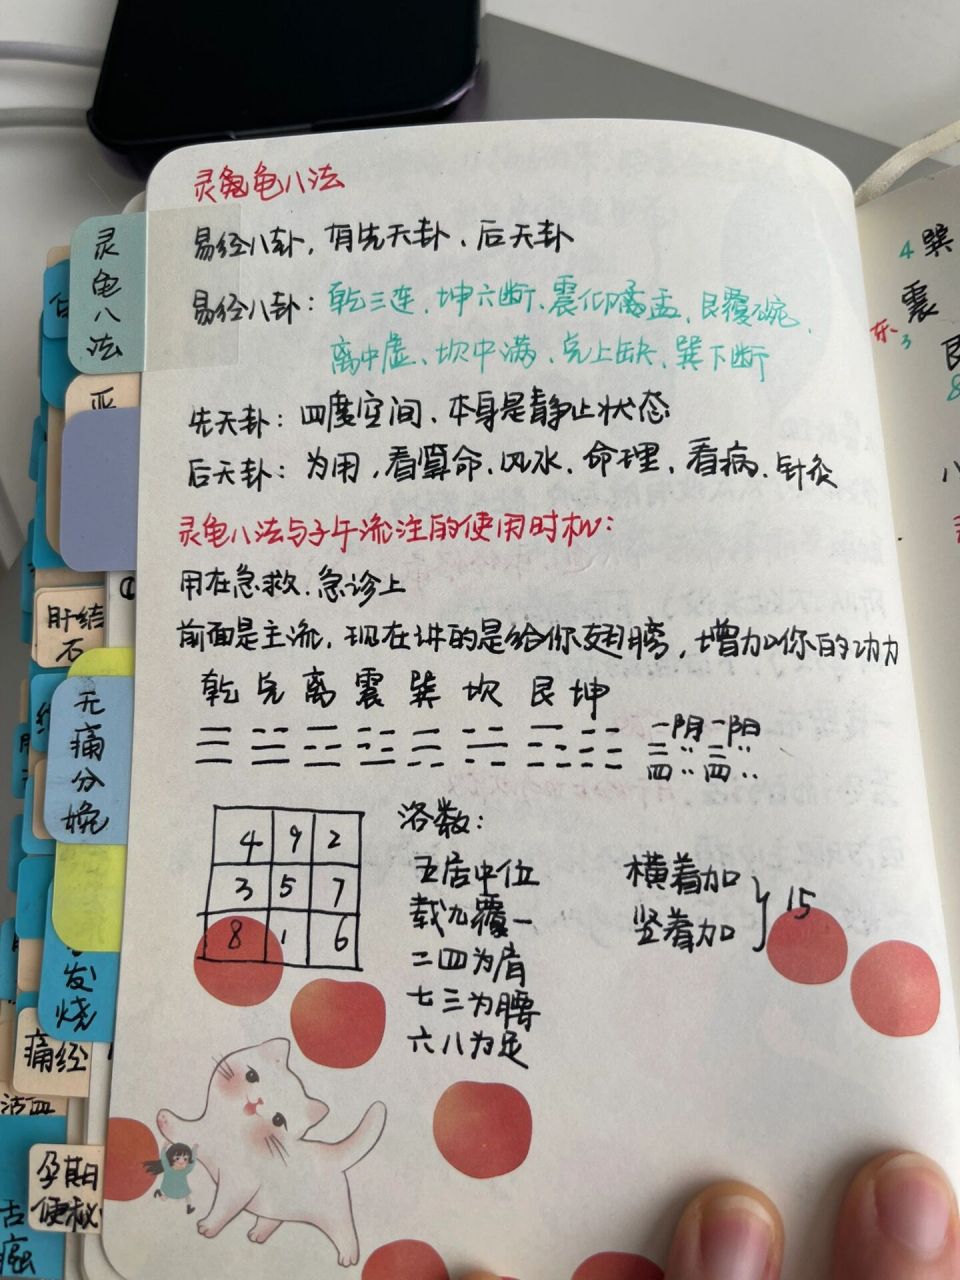 灵龟八法
易经八卦，有先天卦、后天卦
易经八卦：乾三连、坤六断、震仰盂、艮覆碗、
离中虚、坎中满、兑上缺、巽下断
先天卦：四度空间、本身是静止状态
后天卦：为用，看算命、风水、命理、看病、针灸
灵龟八法与子午流注的使用时机：
用在急救、急诊上
前面是主流，现在讲的是给你翅膀，增加你的功力
乾 兑 离 震 巽 坎 艮 坤
一阴一阳
三 ‥ 三 ‥
四 ‥ 四 ‥
4 9 2
3 5 7
8 1 6
洛数：
五居中位
载九覆一
二四为肩
七三为腰
六八为足
横着加
竖着加
15
灵龟八法
肝结石
无痛分娩
发烧
痛经
活血
孕期便秘
4 巽
震
东 3
8